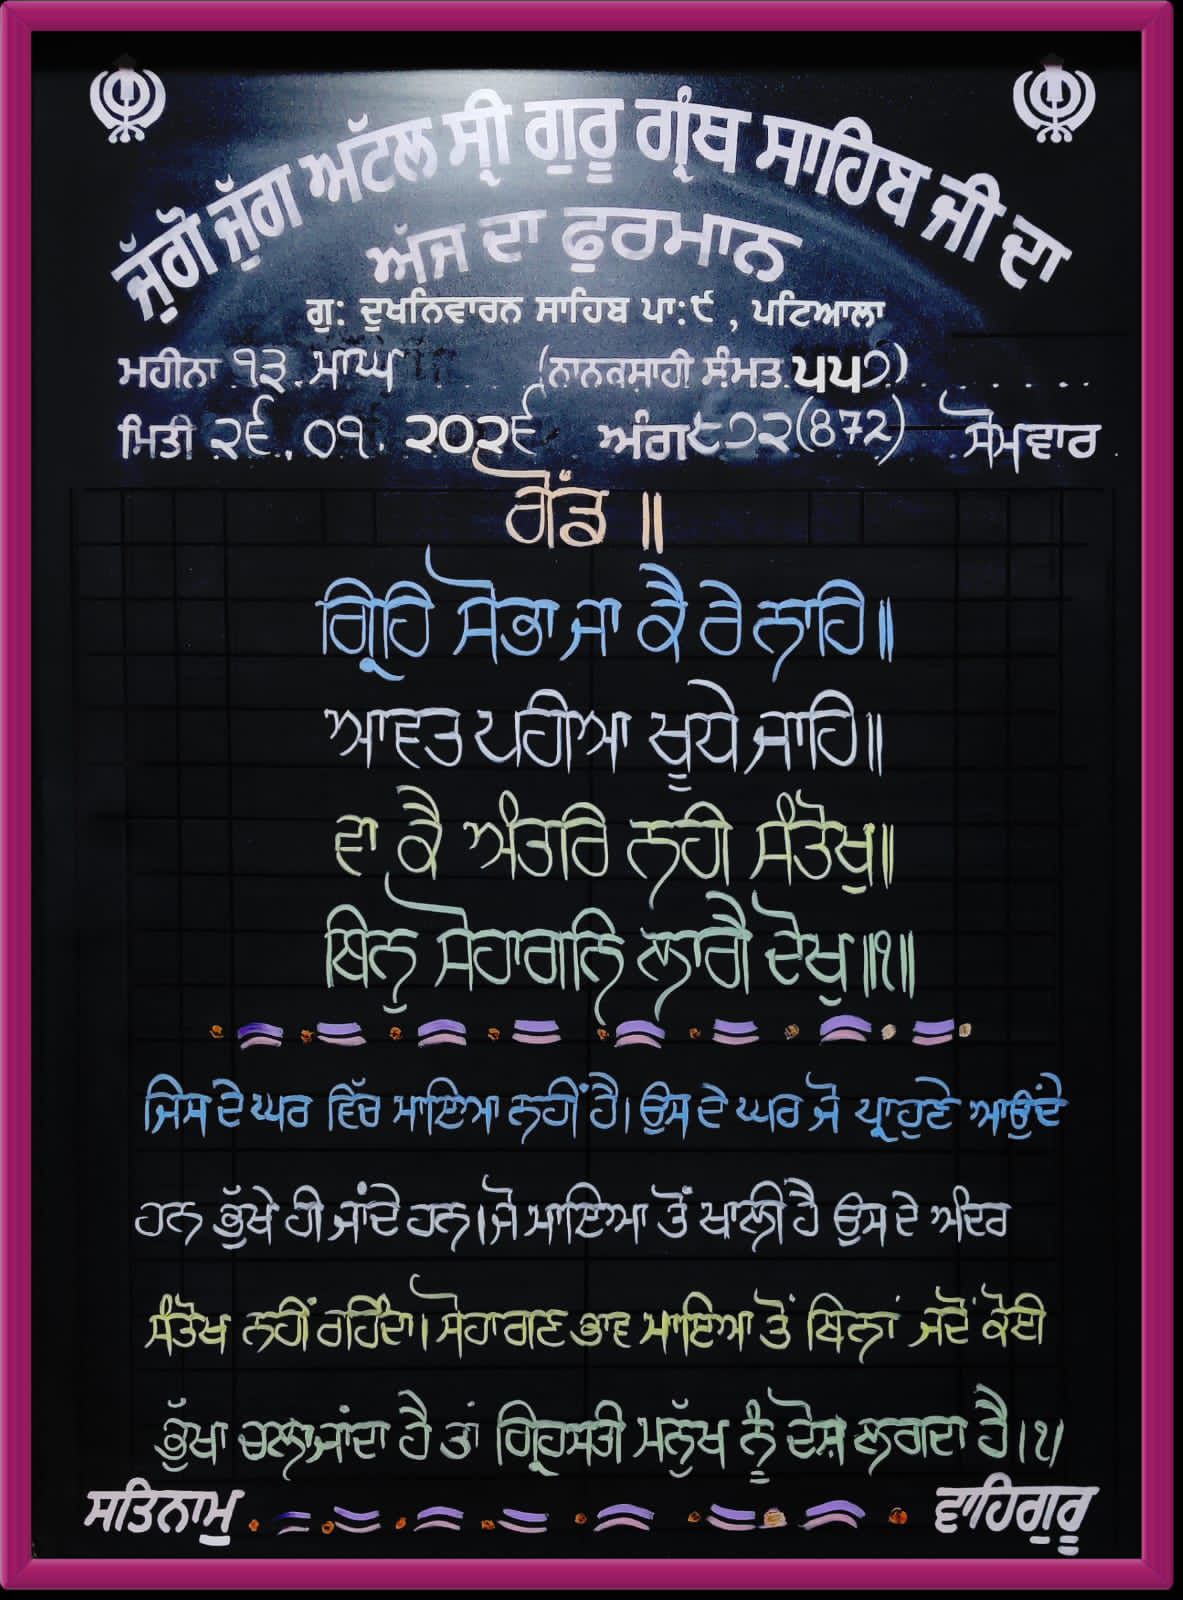 ਜੁੱਗੋ ਜੁੱਗ ਅੱਟਲ ਸ੍ਰੀ ਗੁਰੂ ਗ੍ਰੰਥ ਸਾਹਿਬ ਜੀ ਦਾ
ਅੱਜ ਦਾ ਫੁਰਮਾਨ
ਗੁ: ਦੁਖਨਿਵਾਰਨ ਸਾਹਿਬ ਪਾ:੯, ਪਟਿਆਲਾ
ਮਹੀਨਾ ੧੩ ਮਾਘ (ਨਾਨਕਸਾਹੀ ਸੰਮਤ ੫੫੭)
ਮਿਤੀ ੨੬.੦੧.੨੦੨੬ ਅੰਗ ੮੭੨(872) ਸੋਮਵਾਰ
ਗੋਂਡ ॥
ਗ੍ਰਿਹਿ ਸੋਭਾ ਜਾ ਕੈ ਰੇ ਨਾਹਿ॥
ਆਵਤ ਪਹੀਆ ਖੂਧੇ ਜਾਹਿ॥
ਵਾ ਕੈ ਅੰਤਰਿ ਨਹੀ ਸੰਤੋਖੁ॥
ਬਿਨੁ ਸੋਹਾਗਨਿ ਲਾਗੈ ਦੋਖੁ॥੧॥
ਜਿਸ ਦੇ ਘਰ ਵਿੱਚ ਮਾਇਆ ਨਹੀਂ ਹੈ। ਉਸ ਦੇ ਘਰ ਜੋ ਪ੍ਰਾਹੁਣੇ ਆਉਂਦੇ
ਹਨ ਭੁੱਖੇ ਹੀ ਜਾਂਦੇ ਹਨ।ਜੋ ਮਾਇਆ ਤੋਂ ਖਾਲੀ ਹੈ ਉਸ ਦੇ ਅੰਦਰ
ਸੰਤੋਖ ਨਹੀਂ ਰਹਿੰਦਾ।ਸੋਹਾਗਣ ਭਾਵ ਮਾਇਆ ਤੋਂ ਬਿਨਾਂ ਜਦੋਂ ਕੋਈ
ਭੁੱਖਾ ਚਲਾ ਜਾਂਦਾ ਹੈ ਤਾਂ ਗ੍ਰਿਹਸਤੀ ਮਨੁੱਖ ਨੂੰ ਦੋਸ਼ ਲਗਦਾ ਹੈ।੧।
ਸਤਿਨਾਮੁ ਵਾਹਿਗੁਰੂ